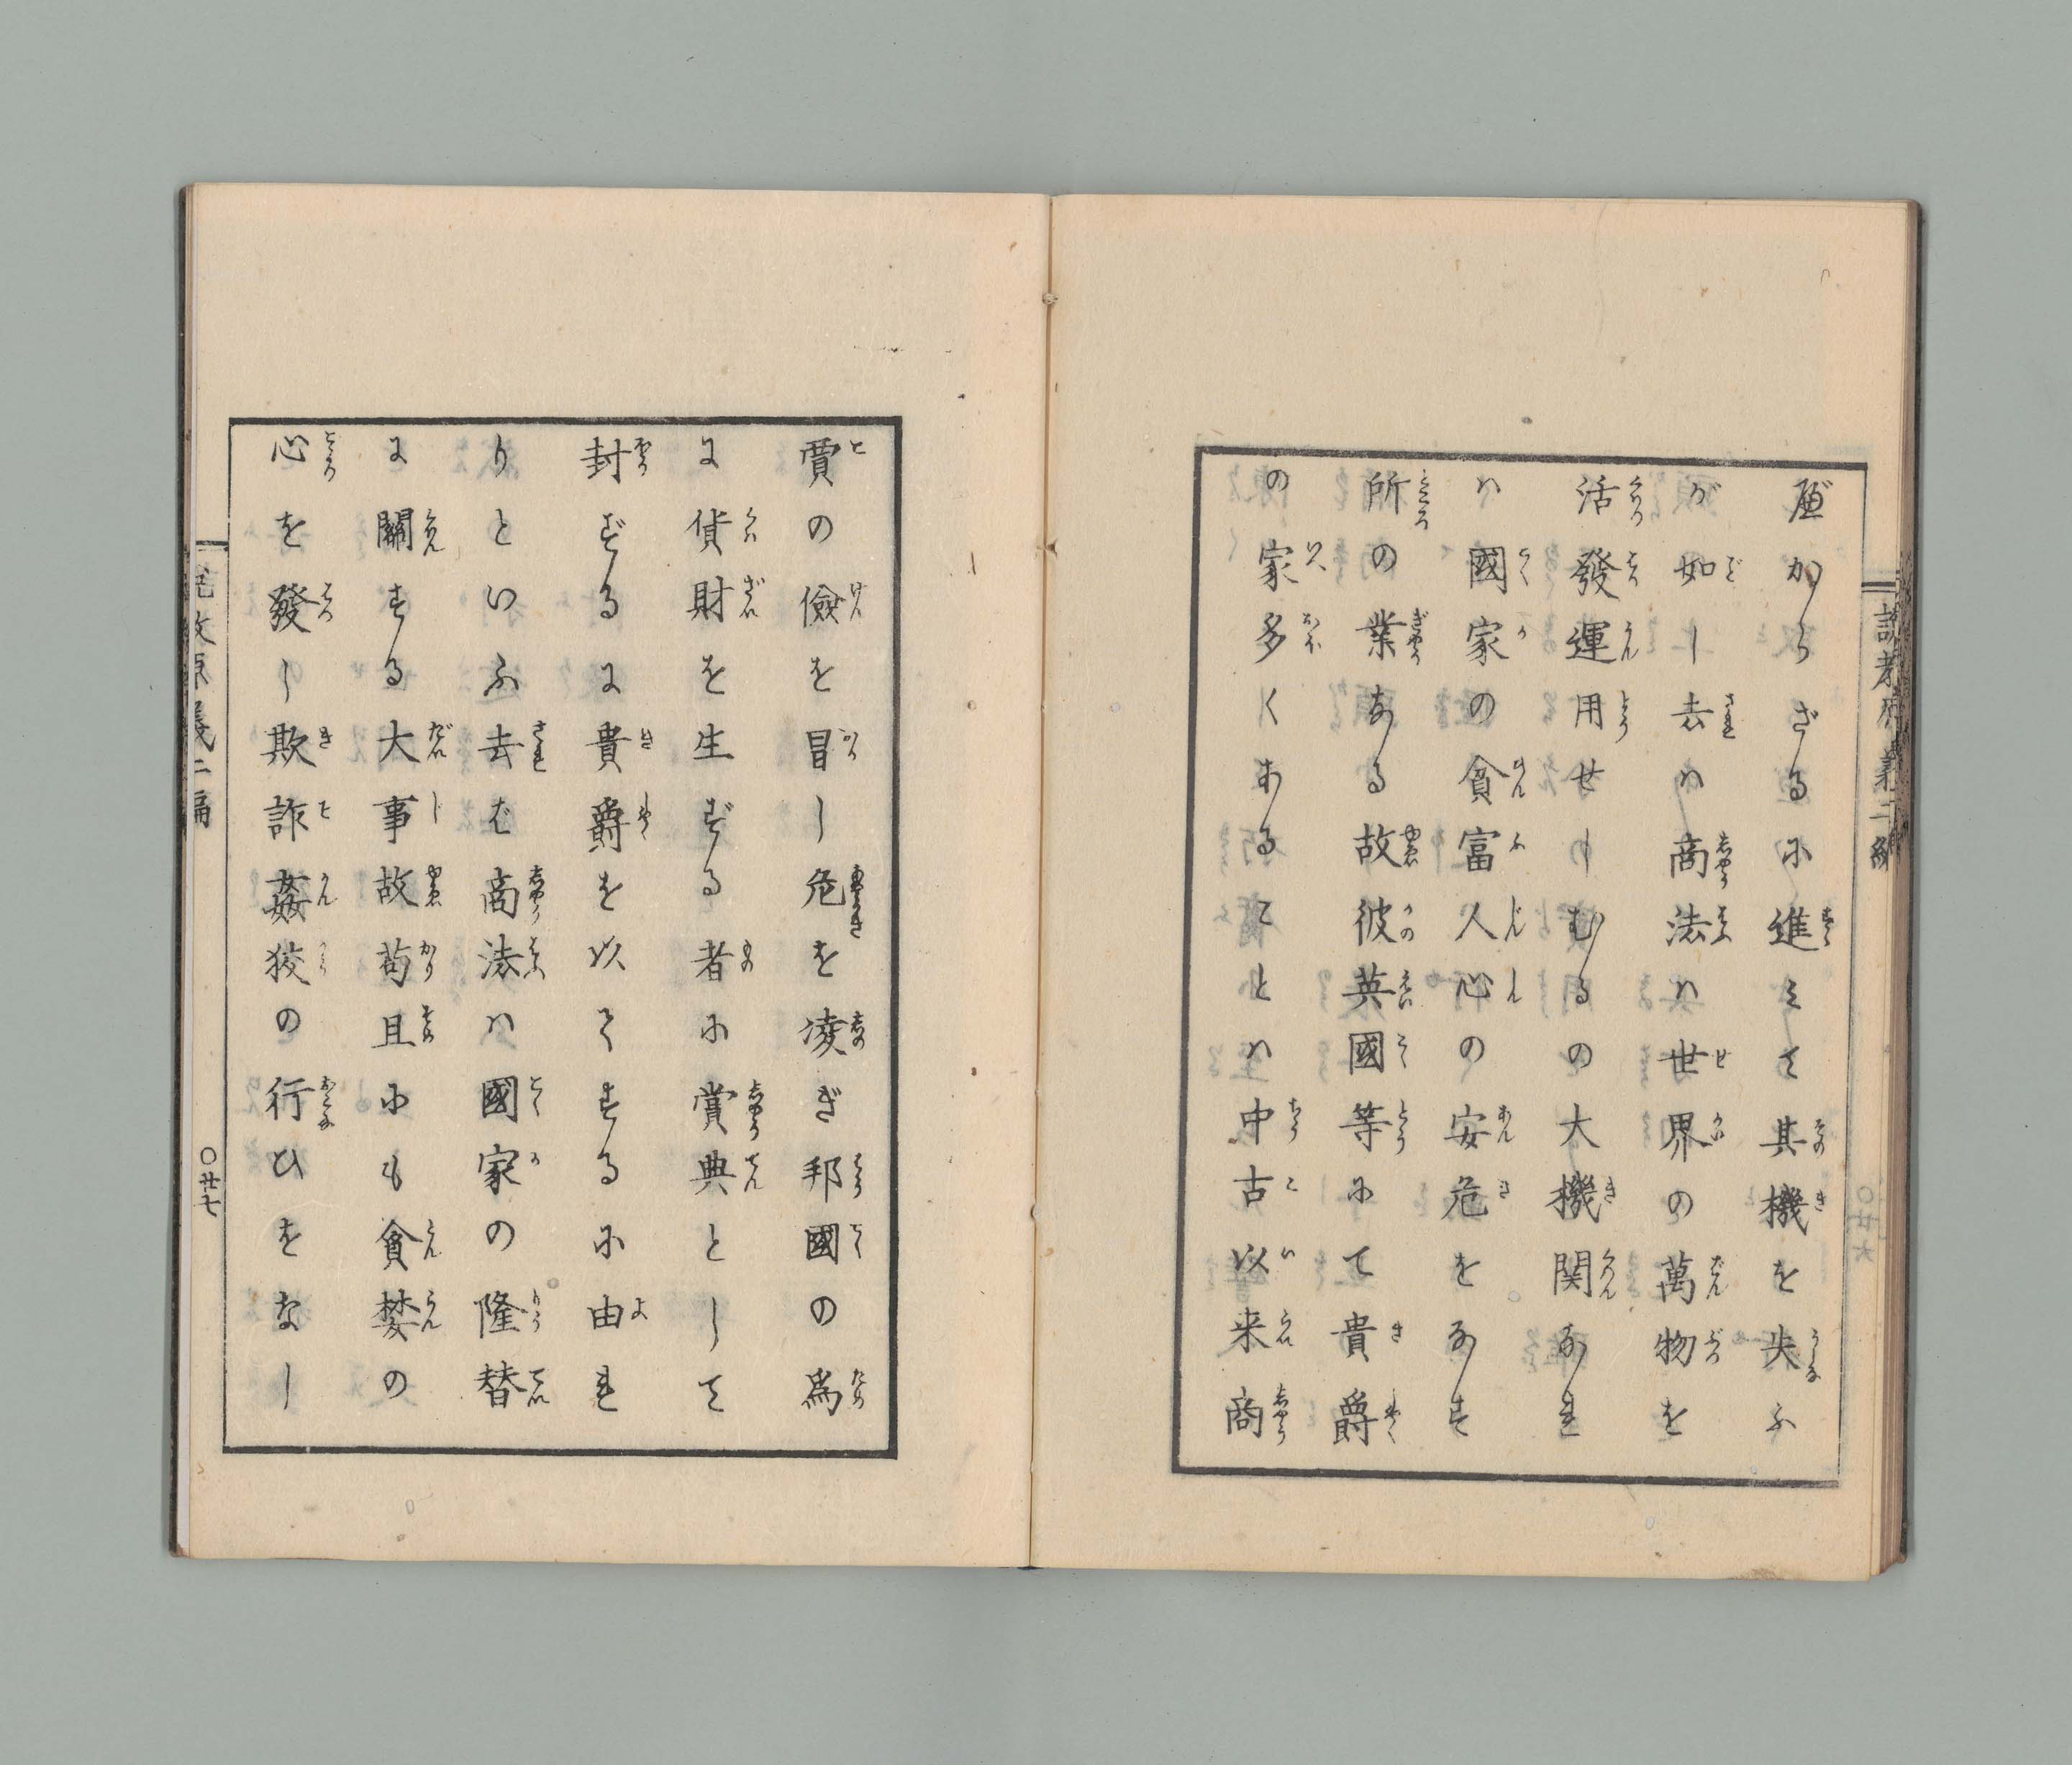 べからざるに進ミて其機を失ふ
が如し去れハ商法ハ世界の萬物を
活發運用せしむるの大機関なれ
ハ國家の貧富人心の安危をなす
所の業なる故彼英國等にて貴爵
の家多くあることハ中古以来商
賈の儉を冒し危を凌ぎ邦國の為
に貨財を生ずる者に賞典として
封ずるに貴爵を以てするに由れ
りといふ去れば商法ハ國家の隆替
に關する大事故苟且にも貪婪の
心を發し欺詐姦狡の行ひをなし
〇廿七